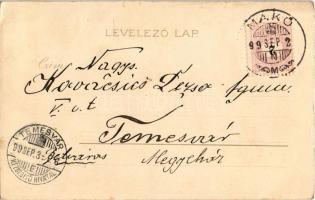 LEVELEZŐ LAP.
MAKÓ
99 SEP 2
Czim
Nagys.
Kovácsics Dezső
V. o. t
Temesvár
Belváros
Megyeház
TEMESVÁR
99 SEP. 3